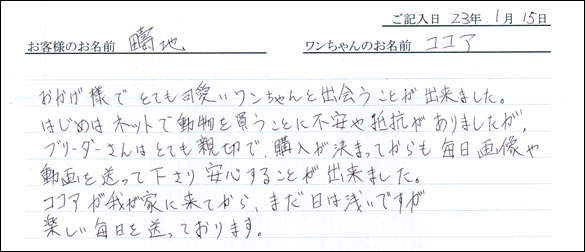 ご記入日 23年 1月 15日
お客様のお名前 疇地 ワンちゃんのお名前 ココア
おかげ様で とても可愛いワンちゃんと出会うことが 出来ました。
はじめは ネットで動物を買うことに不安や抵抗がありましたが、
ブリーダーさんはとても親切で、購入が決まってからも毎日画像や
動画を送って下さり安心することが出来ました。
ココアが我が家に来てから、まだ日は浅いですが
楽しい毎日を送っております。